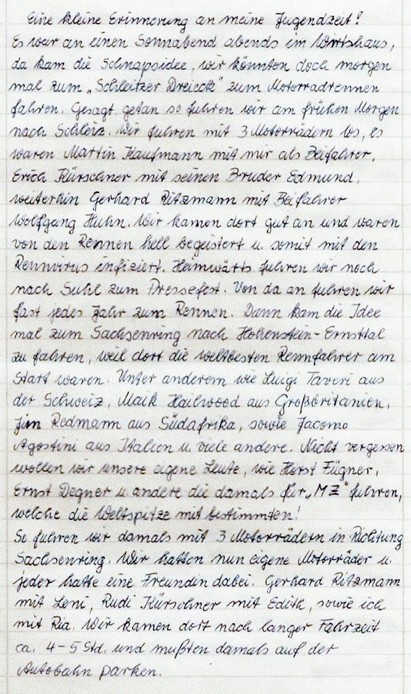 Eine kleine Erinnerung an meine Jugendzeit!
Es war an einen Sonnabend abends im Wirtshaus,
da kam die Schnapsidee, wir könnten doch morgen
mal zum "Schleitzer Dreieck" zum Motorradrennen
fahren. Gesagt, getan so fuhren wir am frühen Morgen
nach Schleiz. Wir fuhren mit 3 Motorrädern los, es
waren Martin Kaufmann mit mir als Beifahrer,
Erich Kürschner mit seinen Bruder Edmund,
weiterhin Gerhard Ritzmann mit Beifahrer
Wolfgang Huhn. Wir kamen dort gut an und waren
von den Rennen hell begeistert u. somit mit den
Rennvirus infiziert. Heimwärts fuhren wir noch
nach Suhl zum Pressefest. Von da an fuhren wir
fast jedes Jahr zum Rennen. Dann kam die Idee
mal zum Sachsenring nach Hohenstein-Ernsttal
zu fahren, weil dort die weltbesten Rennfahrer am
Start waren. Unter anderem wie Luigi Taveri aus
der Schweiz, Maik Hailwood aus Großbritanien,
Jim Redmann aus Südafrika, sowie Jacomo
Agostini aus Italien u. viele andere. Nicht vergessen
wollen wir unsere eigene Leute, wie Horst Fügner,
Ernst Degner u. andere die damals für "MZ" fuhren,
welche die Weltspitze mit bestimmten!
So fuhren wir damals mit 3 Motorrädern in Richtung
Sachsenring. Wir hatten nun eigene Motorräder u.
jeder hatte eine Freundin dabei. Gerhard Ritzmann
mit Leni, Rudi Kürschner mit Edith, sowie ich
mit Ria. Wir kamen dort nach langer Fahrzeit
ca. 4-5 Std. und mußten damals auf der
Autobahn parken.